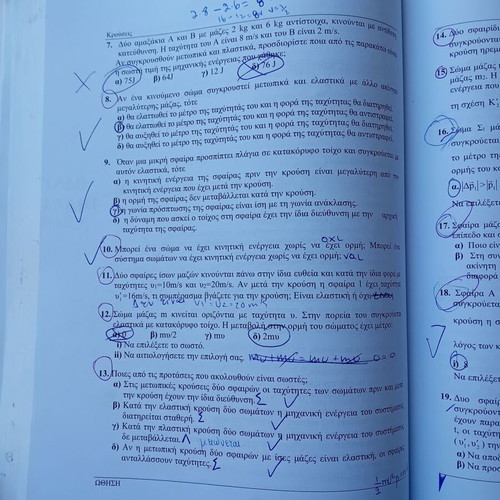 28-26=8
16-12=8υ
Κρούσεις
7. Δύο αμαξάκια Α και Β με μάζες 2 kg και 6 kg αντίστοιχα, κινούνται με αντίθετη
κατεύθυνση. Η ταχύτητα του Α είναι 8 m/s και του Β είναι 2 m/s.
Αν συγκρουσθούν μετωπικά και πλαστικά, προσδιορίστε ποια από τις παρακάτω
η σωστή τιμή της μηχανικής ενέργειας που χάθηκε;
α) 75J β) 64J γ) 12 J δ) 76 J
8. Αν ένα κινούμενο σώμα συγκρουστεί μετωπικά και ελαστικά με άλλο ακίνητο
μεγαλύτερης μάζας, τότε
α) θα ελαττωθεί το μέτρο της ταχύτητάς του και η φορά της ταχύτητας θα διατηρηθεί.
β) θα ελαττωθεί το μέτρο της ταχύτητάς του και η φορά της ταχύτητας θα αντιστραφεί.
γ) θα αυξηθεί το μέτρο της ταχύτητάς του και η φορά της ταχύτητας θα διατηρηθεί.
δ) θα αυξηθεί το μέτρο της ταχύτητάς του και η φορά της ταχύτητας θα αντιστραφεί.
9. Όταν μια μικρή σφαίρα προσπίπτει πλάγια σε κατακόρυφο τοίχο και συγκρούεται με
αυτόν ελαστικά, τότε
α) η κινητική ενέργεια της σφαίρας πριν την κρούση είναι μεγαλύτερη από την
κινητική ενέργεια που έχει μετά την κρούση.
β) η ορμή της σφαίρας δεν μεταβάλλεται κατά την κρούση.
γ) η γωνία πρόσπτωσης της σφαίρας είναι ίση με τη γωνία ανάκλασης.
δ) η δύναμη που ασκεί ο τοίχος στη σφαίρα έχει την ίδια διεύθυνση με την αρχική
ταχύτητα της σφαίρας.
οχι
10. Μπορεί ένα σώμα να έχει κινητική ενέργεια χωρίς να έχει ορμή; Μπορεί ένα
σύστημα σωμάτων να έχει κινητική ενέργεια χωρίς να έχει ορμή; ναι
11. Δύο σφαίρες ίσων μαζών κινούνται πάνω στην ίδια ευθεία και κατά την ίδια φορά με
ταχύτητες υ1=10m/s και υ2=20m/s. Αν μετά την κρούση η σφαίρα 1 έχει ταχύτητα
υ1'=16m/s, τι συμπέρασμα βγάζετε για την κρούση; Είναι ελαστική ή όχι;
Δεν ειναι υ1'=υ2=20m/s
12. Σώμα μάζας m κινείται οριζόντια με ταχύτητα υ. Στην πορεία του συγκρούεται
ελαστικά με κατακόρυφο τοίχο. Η μεταβολή στην ορμή του σώματος έχει μέτρο:
α) 0 β) mυ/2 γ) mυ δ) 2mυ
i) Να επιλέξετε το σωστό.
ii) Να αιτιολογήσετε την επιλογή σας. 0=0
13. Ποιες από τις προτάσεις που ακολουθούν είναι σωστές;
α) Στις μετωπικές κρούσεις δύο σφαιρών οι ταχύτητες των σωμάτων πριν και μετά
την κρούση έχουν την ίδια διεύθυνση. Σ
β) Κατά την ελαστική κρούση δύο σωμάτων η μηχανική ενέργεια του συστήματος
διατηρείται σταθερή. Σ
γ) Κατά την πλαστική κρούση δύο σωμάτων η μηχανική ενέργεια του συστήματος
δε μεταβάλλεται. Λ μειωνεται
δ) Αν η μετωπική κρούση δύο σφαιρών με ίσες μάζες είναι ελαστική, οι σφαίρες
ανταλλάσσουν ταχύτητες. Σ
ΩΘΗΣΗ
14. Δύο σφαιρίδια
συγκρούονται
κρούση μένει
15. Σώμα μάζας
μάζας m2. Η
ενέργεια που
τη σχέση Κ
16. Σώμα Σ1 με
συγκρούεται
το μέτρο της
ορμής του
α. |Δp1|>|p1
Να επιλέξετε
17. Σφαίρα μάζας
επίπεδο και σ
α) Ποιο είν
β) Στη συν
ακίνητη
διαφορά
18. Σφαίρα Α
συγκρούεται
κρούση η σ
κρούση
i) 8
Να επιλέξετε
19. Δυο σφαίρες
συγκρούονται
έχουν παρα
t, οι ταχύτητ
(υ1', υ2') την
α) Να αποδ
β) Να προσ